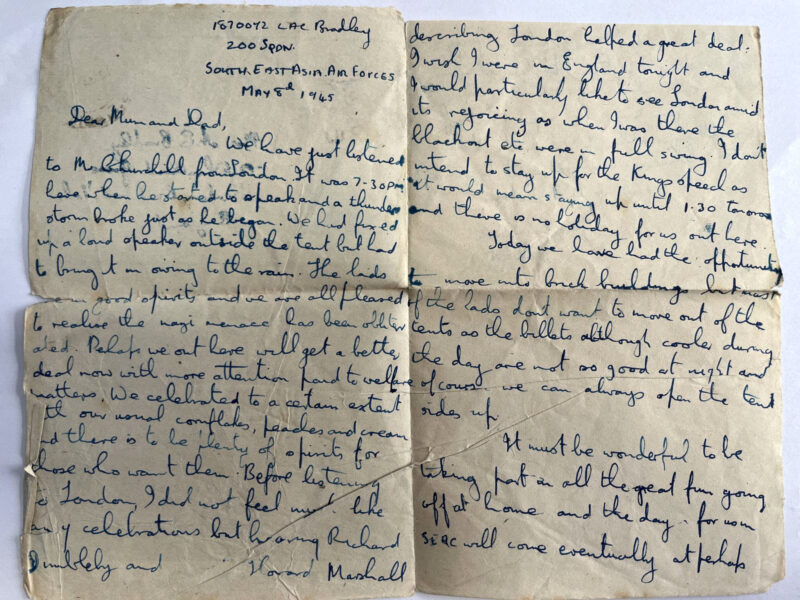 1870072 LAC Bradley
200 SQDN.
SOUTH EAST ASIA AIR FORCES
MAY 8th 1945
Dear Mum and Dad,
We have just listened
to Mr Churchill from London. It was 7-30pm
here when he started to speak and a thunder
storm broke just as he began. We had fixed
up a loud speaker outside the tent but had
to bring it in owing to the rain. The lads
in good spirits and we are all pleased
to realise the nazi menace has been obliter
ated. Perhaps we out here will get a better
deal now with more attention paid to welfare
matters. We celebrated to a certain extent
with our usual cornflakes, peaches and cream
and there is to be plenty of spirits for
those who want them. Before listening
to London, I did not feel much like
any celebrations but hearing Richard
Dimbleby and Howard Marshall
describing London helped a great deal.
I wish I were in England tonight and
I would particularly like to see London amid
its rejoicing as when I was there the
blackout etc were in full swing. I don't
intend to stay up for the Kings speech as
it would mean staying up until 1.30 tomorrow
and there is no holiday for us out here.
Today we have had the opportunity
to move into brick buildings but most
of the lads dont want to move out of the
tents as the billets although cooler during
the day are not so good at night and
of course we can always open the tent
sides up.
It must be wonderful to be
taking part in all the great fun going
off at home and the day - for us in
SEAC will come eventually at perhaps